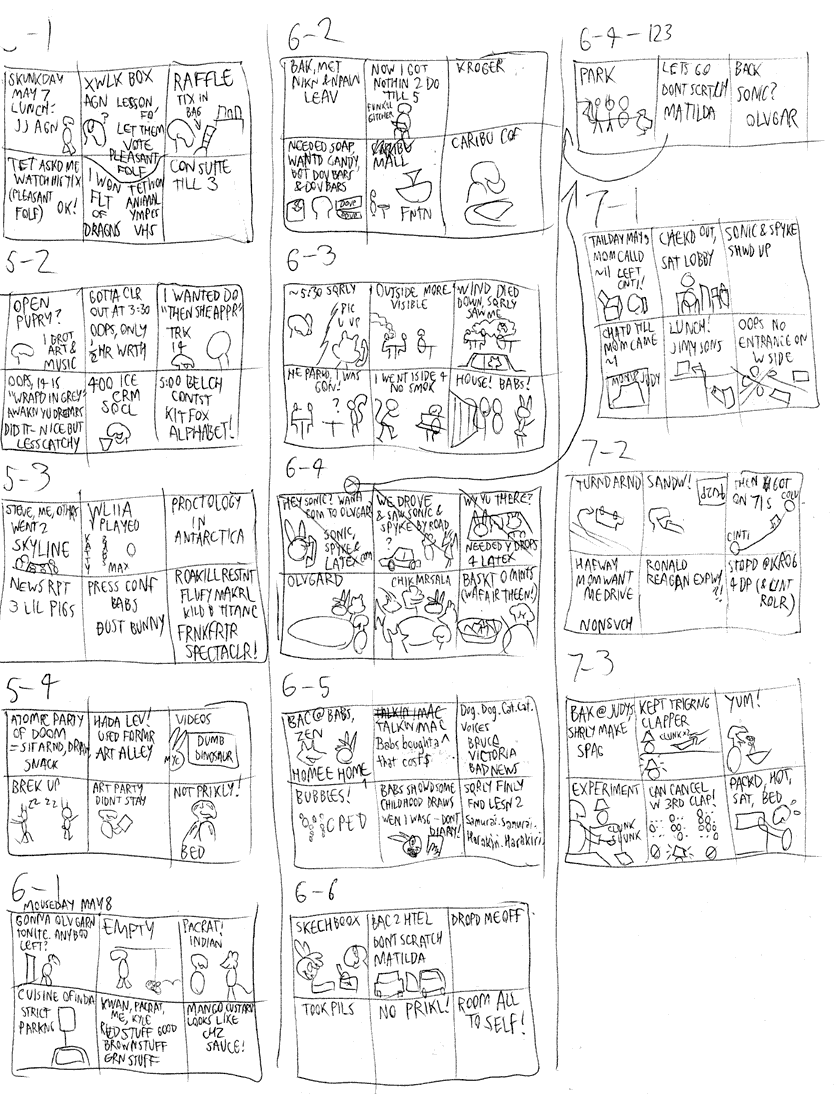 5-1
SKUNKDAY
MAY 7
LUNCH:
JJ AGN
XWLK BOX
AGN LESSON
FO,
LET THEM
VOTE
PLEASANT
FOLF
RAFFLE
TIX IN
BAG
TET ASKD ME
WATCH HIS TIX
(PLEASANT
FOLF) OK!
I WON
FLT
OF
DRAGNS
TET WON
ANIMAL
YMPCS
VHS
CON SUITE
TILL 3
5-2
OPEN
PUPRY?
I BROT
ART &
MUSIC
GOTTA CLR
OUT AT 3:30
OOPS, ONLY
½HR WRTH
I WANTED DO
"THEN SHE APPR"
TRK
OOPS, 14 IS
"WRAPD IN GREY"
AWAKN YU DREMRS
DID IT- NICE BUT
LESS CATCHY
4:00 ICE
CRM
SOCL
5:00 BELCH
CONTST
KIT FOX
ALPHABET!
5-3
STEVE, ME, OTHRS
WENT 2
SKYLINE
WLIIA
PLAYED
MAX
PROCTOLOGY
IN
ANTARCTICA
NEWS RPT
3 LIL PIGS
PRESS CONF
BABS
DUST BUNNY
ROAKILL RESTNT
FLUFY MAKRL
KILD B TITANC
FRNKFRTR
SPECTACLR!
5-4
ATOMIC PARTY
OF DOOM
= SIT ARND, DRAW,
SNACK
HADA LEV!
USED FORMR
ART ALLEY
VIDEOS
MXC
DUMB
DINOSAUR
BREK UP
ZZ ZZ
ART PARTY
DIDNT STAY
NOT PRIKLY!
BED
6-1
MOUSEDAY MAY 8
GONNA OLVGARN
TONITE. ANYBOD
LEFT?
EMPTY
PACRAT!
INDIAN
CUISINE OF INDIA
STRICT
PARKNG
KWAN, PACRAT,
ME, KYLE
RED STUFF GOOD
BROWN STUFF
GRN STUFF
MANGO CUSTARD
LOOKS LIKE
CHZ
SAUCE!
6-2
BAK, MET
NIKN & NPAIN
LEAV
NOW I GOT
NOTHIN 2 DO
TILL 5
KROGER
NEEDED SOAP,
WANTD CANDY,
GOT DOV BARS
& DOV BARS
DOVE
DOVE
MALL
FNTN
CARIBU COF
6-3
~5:30 SQRLY
PIC
U UP
OUTSIDE MORE
VISIBLE
WIND DIED
DOWN, SQRLY
SAW ME
HE PARKD, I WAS
GON!
?
I WENT ISIDE 4
NO SMOK
HOUSE! BABS!
6-4
HEY SONIC? WANA
COM TO OLVGAR?
SONIC,
SPYKE &
LATEX COM
WE DROVE
& SAW SONIC &
SPYKE BY ROAD
?
WY YU THERE?
NEEDED Y DROPS
4 LATEX
OLVGARD
CHIK MRSALA
BASKT O MINTS
(WAFAIR THEEN!)
6-5
BAC @ BABS,
ZEN
HOMEE HOME
TALKIN IMAC
TALKIN IMAC
Babs bought a
that cost $
Dog. Dog. Cat. Cat.
Voices
BRUCE
VICTORIA
BAD NEWS
BUBBLES!
CPED
BABS SHOWD SOME
CHILDHOOD DRAWS
WEN I WAS 6 - DONT
DIARY!
SQRLY FINLY
FND LESN 2
Samurai. Samurai.
Harakiri. Harakiri.
6-6
SKECHBOOX
BAC 2 HTEL
DONT SCRATCH
MATILDA
DROPD ME OFF
TOOK PILS
NO PRIKL!
ROOM ALL
TO SELF!
6-4-123
PARK
LETS GO
DONT SCRTCH
MATILDA
BACK
SONIC?
OLVGAR
7-1
TAILDAY MAY 9
MOM CALLD
~11 LEFT
CNTI!
CHEKD OUT,
SAT LOBBY
SONIC & SPYKE
SHWD UP
CHATD TILL
MOM CAME
~1
MOM JUDY
LUNCH!
JIMY JONS
OOPS NO
ENTRANCE ON
W SIDE
7-2
TURND ARND
SANDW!
THEN GOT
ON 71 S
COLU
CINTI
HAFWAY
MOM WANT
ME DRIVE
NONSVCH
RONALD
REAGAN EXPWY
?!
STOPD @ KROG
4 DP (& LINT
ROLR)
7-3
BAK @ JUDYS
SHRLY MAKE
SPAG
KEPT TRIGRNG
CLAPPER
CLUNK x2
YUM!
EXPERIMENT
CLUNK
SHUNK
CAN CANCEL
W 3RD CLAP!
PACKD, HOT,
SAT, BED